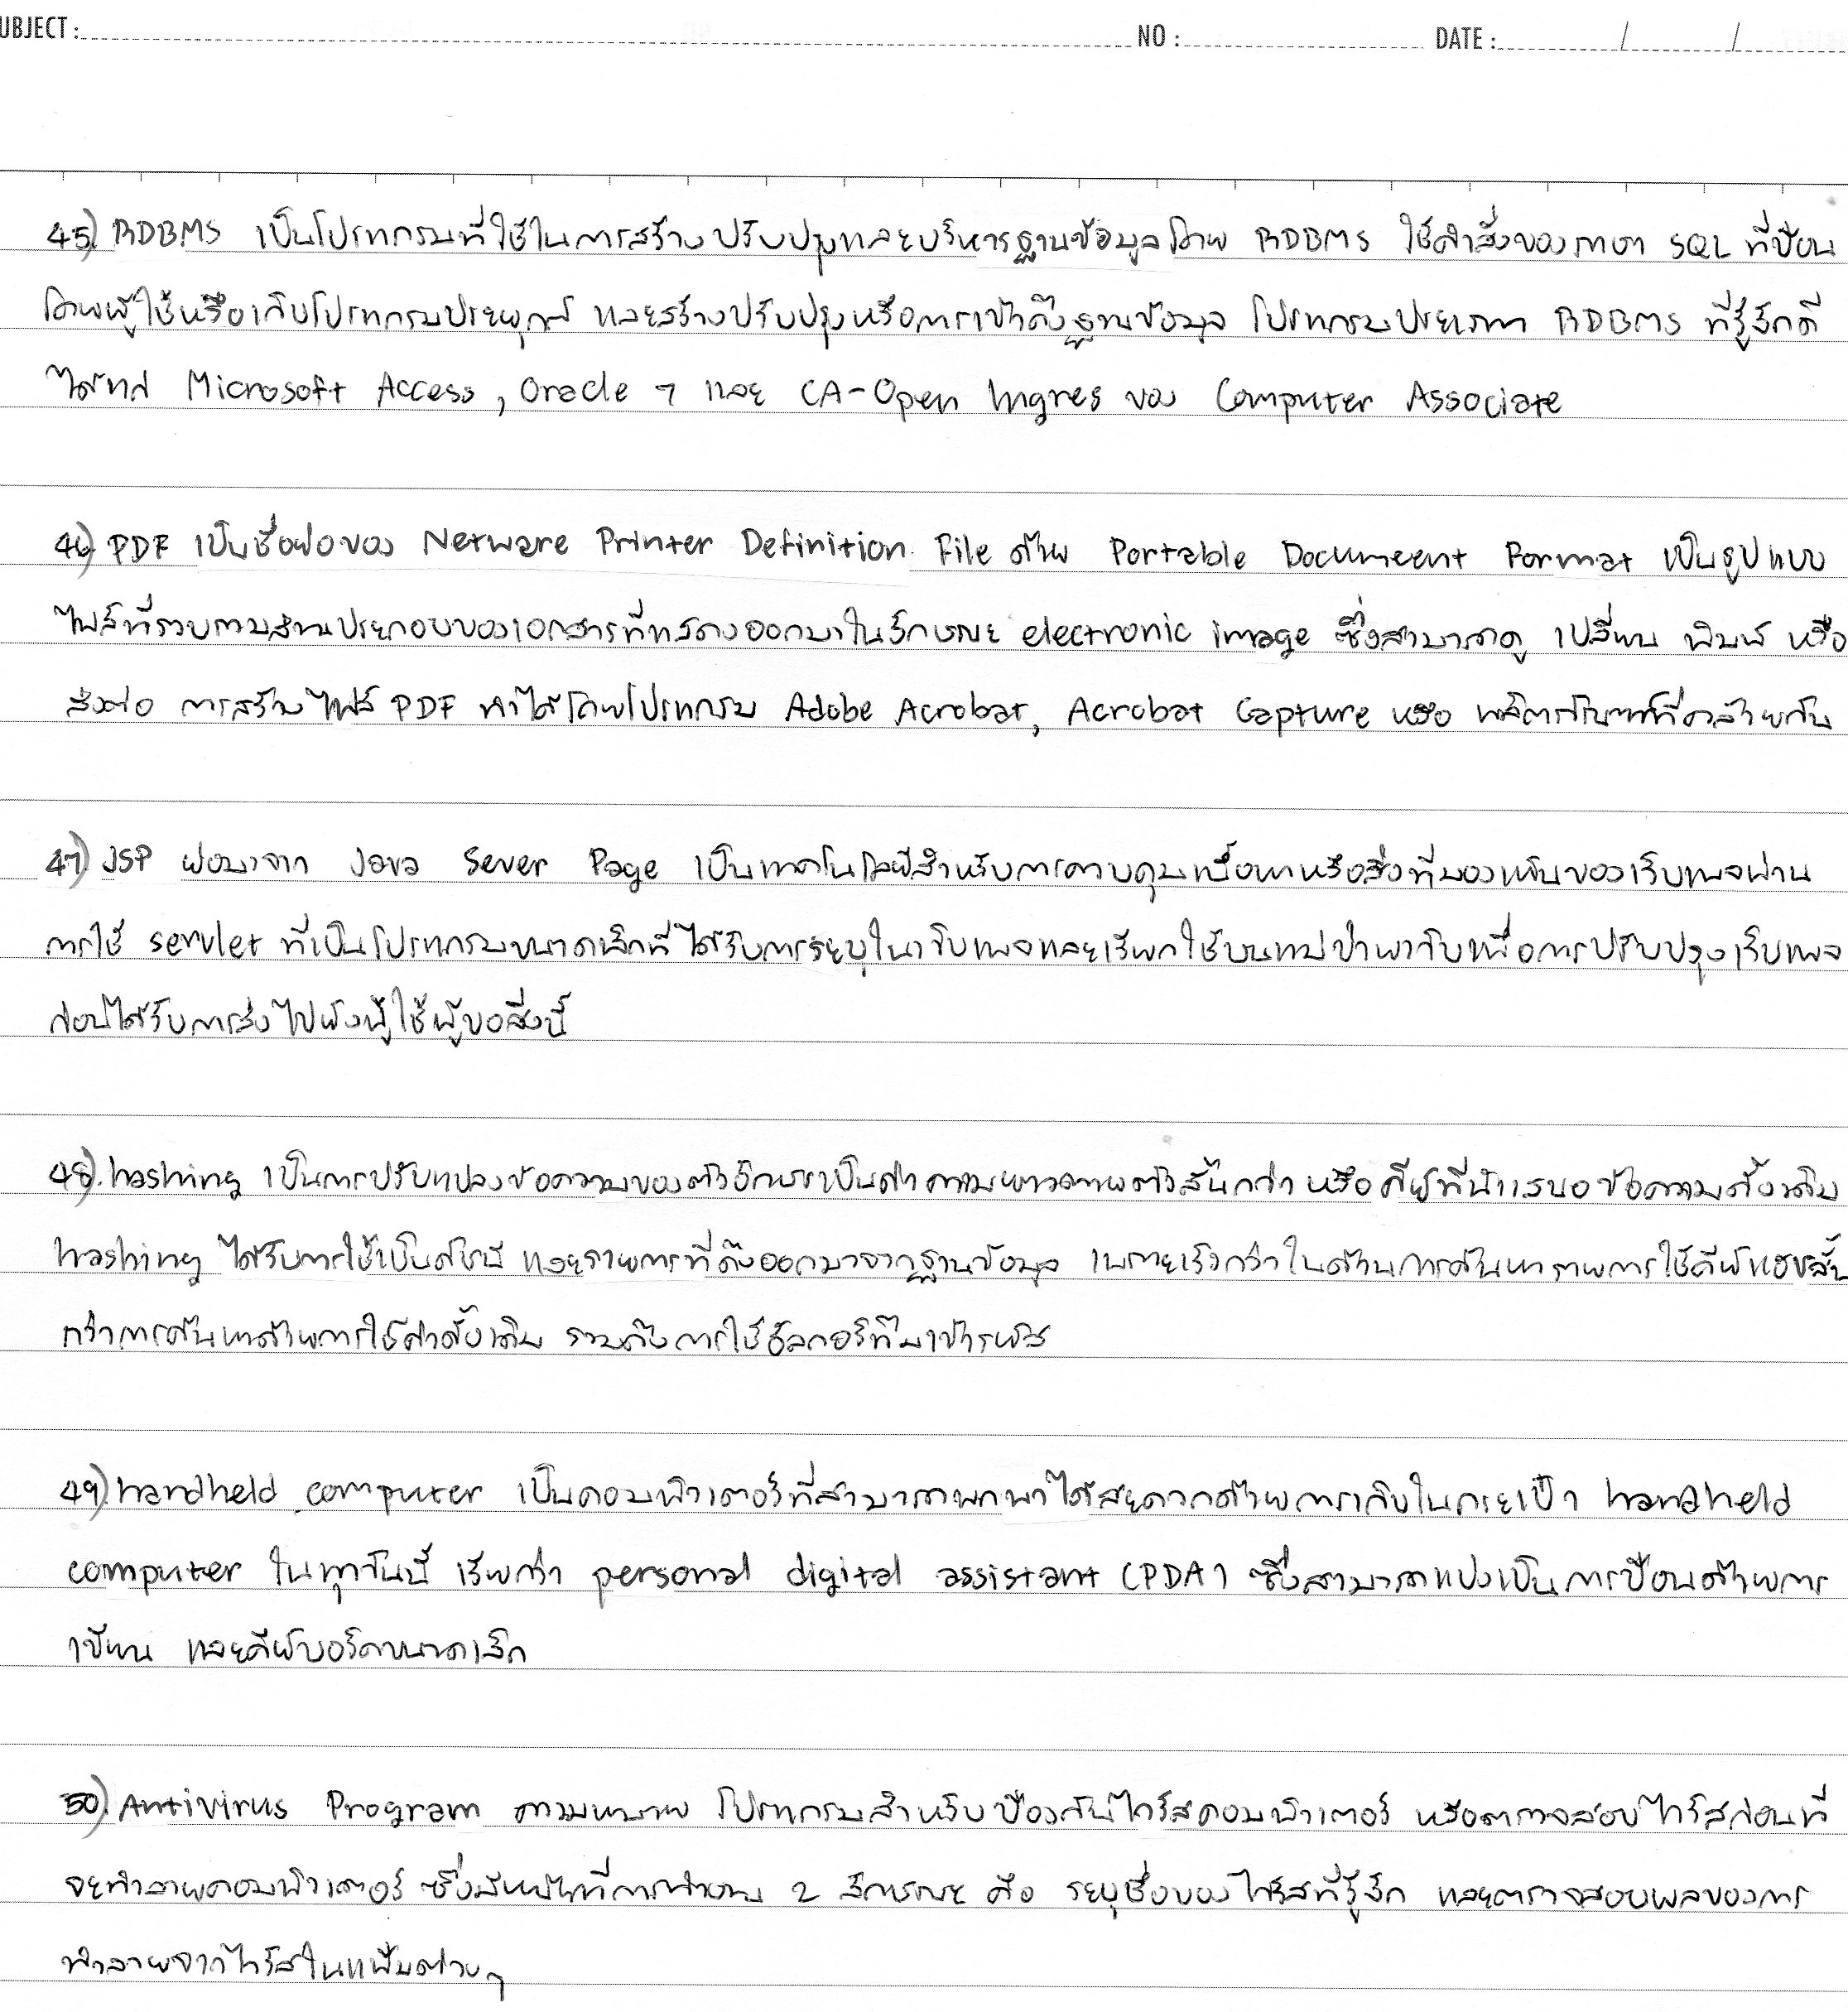 UBJECT : NO : DATE : / /
45) RDBMS เป็นโปรแกรมที่ใช้ในการสร้าง ปรับปรุงและบริหารฐานข้อมูลโดย RDBMS ใช้คำสั่งของภาษา SQL ที่ป้อน
โดยผู้ใช้หรือเก็บโปรแกรมประยุกต์ และสร้างปรับปรุงหรือการเข้าถึงฐานข้อมูล โปรแกรมประเภท RDBMS ที่รู้จักดี
ได้แก่ Microsoft Access, Oracle 7 และ CA-Open Ingres ของ Computer Associate
46) PDF เป็นชื่อย่อของ Netware Printer Definition File ด้วย Portable Document Format เป็นรูปแบบ
ไฟล์ที่รวบรวมส่วนประกอบของเอกสารที่แสดงออกมาในลักษณะ electronic image ซึ่งสามารถดู เปลี่ยน พิมพ์ หรือ
ส่งต่อ การสร้างไฟล์ PDF ทำได้โดยโปรแกรม Adobe Acrobat, Acrobat Capture หรือ ผลิตภัณฑ์ที่คล้ายกัน
47) JSP ย่อมาจาก Java Sever Page เป็นเทคโนโลยีสำหรับการควบคุมเนื้อหาหรือสิ่งที่มองเห็นของเว็บเพจผ่าน
การใช้ servlet ที่เป็นโปรแกรมขนาดเล็กที่ได้รับการระบุในเว็บเพจและเรียกใช้บนแม่ข่ายเว็บเพื่อการปรับปรุงเว็บเพจ
ก่อนได้รับการส่งไปยังผู้ใช้ผู้ขอสิ่งนี้
48). hashing เป็นการปรับแปลงข้อความของตัวอักษรเป็นค่าความยาวตายตัวสั้นกว่า หรือ คีย์ที่นำเสนอข้อความดั้งเดิม
hashing ได้รับการใช้เป็นดัชนี และรายการที่ดึงออกมาจากฐานข้อมูล เพราะเร็วกว่าในด้านการค้นหารายการใช้คีย์แฮชสั้น
กว่าการค้นหาด้วยการใช้ค่าดั้งเดิม รวมถึงการใช้อัลกอริทึมเข้ารหัส
49) handheld computer เป็นคอมพิวเตอร์ที่สามารถพกพาได้สะดวกด้วยการเก็บในกระเป๋า handheld
computer ในทุกวันนี้ เรียกว่า personal digital assistant (PDA) ซึ่งสามารถแบ่งเป็นการป้อนด้วยการ
เขียน และคีย์บอร์ดขนาดเล็ก
50) Antivirus Program ความหมาย โปรแกรมสำหรับป้องกันไวรัสคอมพิวเตอร์ หรือตรวจสอบไวรัสก่อนที่
จะทำลายคอมพิวเตอร์ ซึ่งมีหน้าที่การทำงาน 2 ลักษณะ คือ ระบุชื่อของไวรัสที่รู้จัก และตรวจสอบผลของการ
ทำลายจากไวรัสในแฟ้มต่างๆ